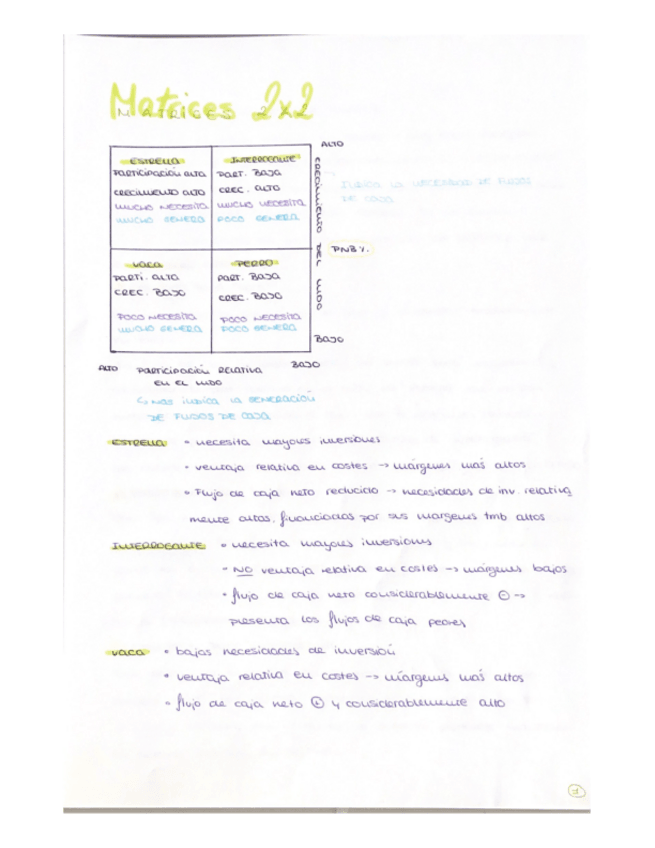 Matrices 2x2
MATRICES 2X2
ALTO
ESTRELLA
PARTICIPACIÓN ALTA
CRECIMIENTO ALTO
MUCHO NECESITA
MUCHO GENERA
INTERROGANTE
PART. BAJA
CREC. ALTO
MUCHO NECESITA
POCO GENERA
CRECIMIENTO DEL MDO
INDICA LA NECESIDAD DE FLUJOS
DE CAJA
PNB %
VACA
PARTI. ALTA
CREC. BAJO
POCO NECESITA
MUCHO GENERA
PERRO
PART. BAJA
CREC. BAJO
POCO NECESITA
POCO GENERA
BAJO
ALTO PARTICIPACIÓN RELATIVA BAJO
EN EL MDO
↳ NOS INDICA LA GENERACIÓN
DE FLUJOS DE CAJA
ESTRELLA • necesita mayores inversiones
• ventaja relativa en costes → márgenes más altos
• Flujo de caja neto reducido → necesidades de inv. relativa
mente altas, financiadas por sus margenes tmb altos
INTERROGANTE • necesita mayores inversiones
• NO ventaja relativa en costes → márgenes bajos
• flujo de caja neto considerablemente ⊖ →
presenta los flujos de caja peores
VACA • bajas necesidades de inversión
• ventaja relativa en costes → márgenes más altos
• flujo de caja neto ⊕ y considerablemente alto